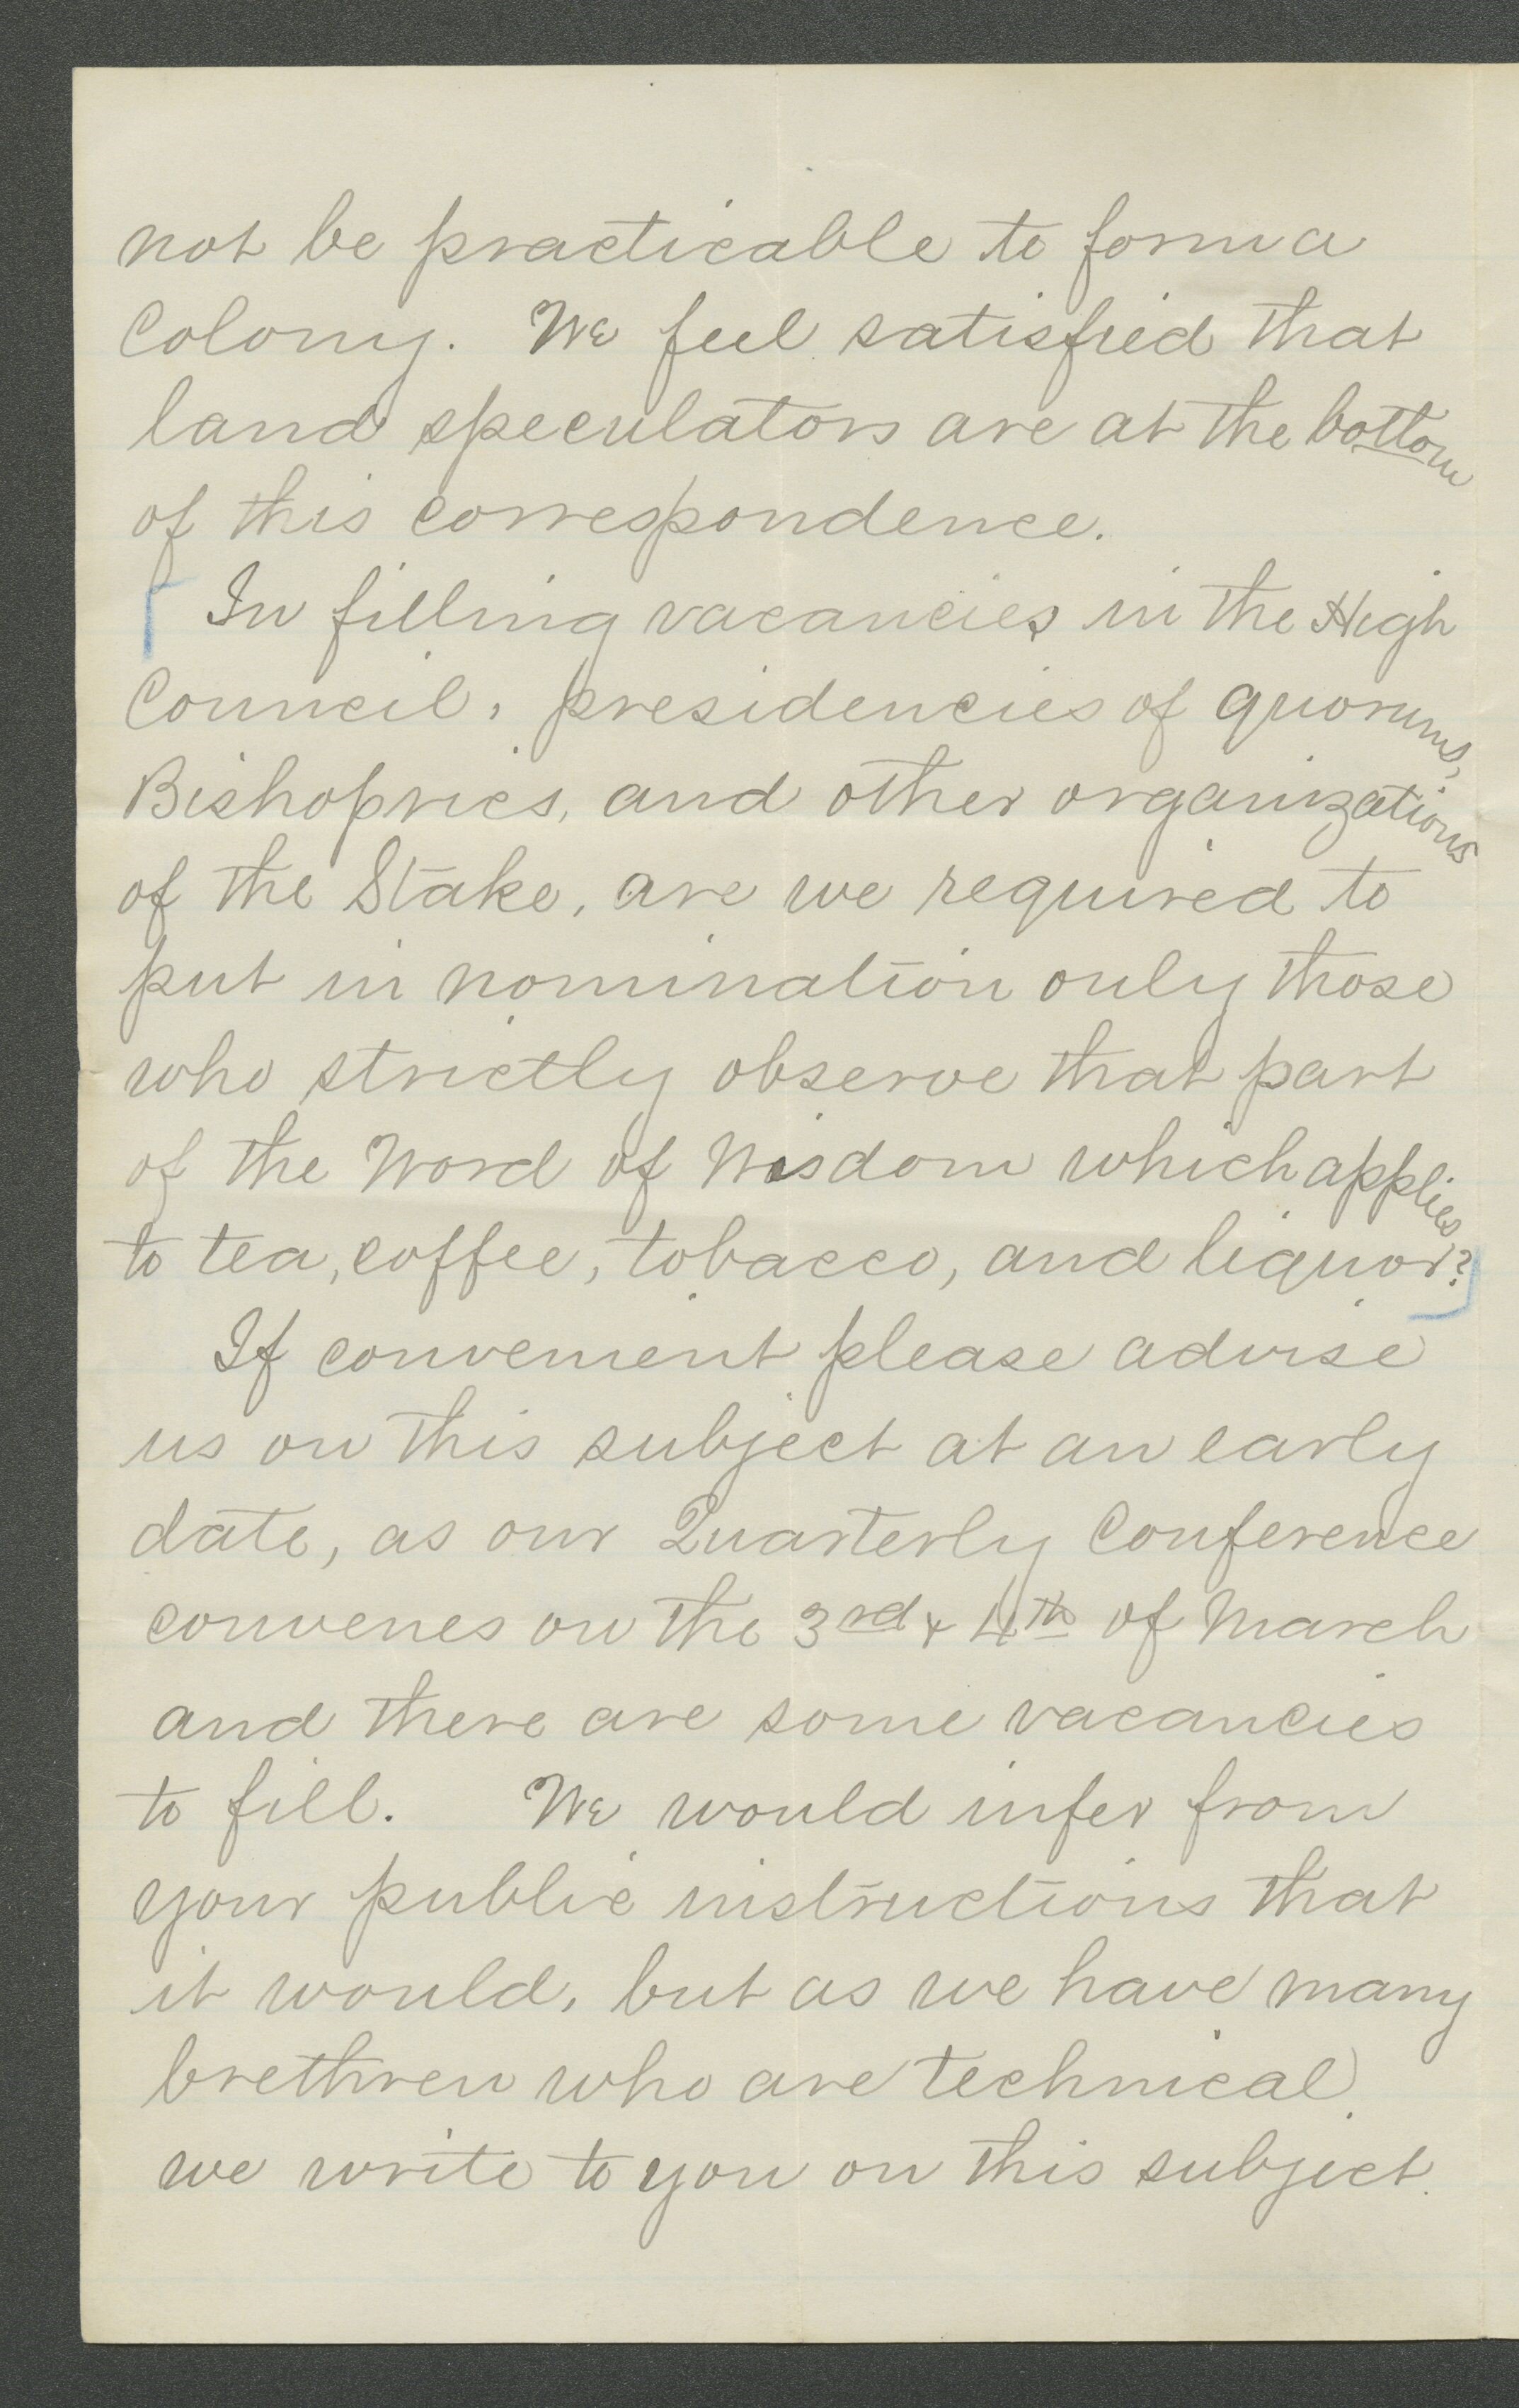 not be practicable to form a
Colony. We feel satisfied that
land speculators are at the bottom
of this correspondence.
In filling vacancies in the High
Council, presidencies of quorums,
Bishoprics, and other organizations
of the Stake, are we required to
put in nomination only those
who strictly observe that part
of the Word of Wisdom which applies
to tea, coffee, tobacco, and liquor?
If convenient please advise
us on this subject at an early
date, as our Quarterly Conference
convenes on the 3rd & 4th of March
and there are some vacancies
to fill. We would infer from
your public instructions that
it would, but as we have many
brethren who are technical
we write to you on this subject.